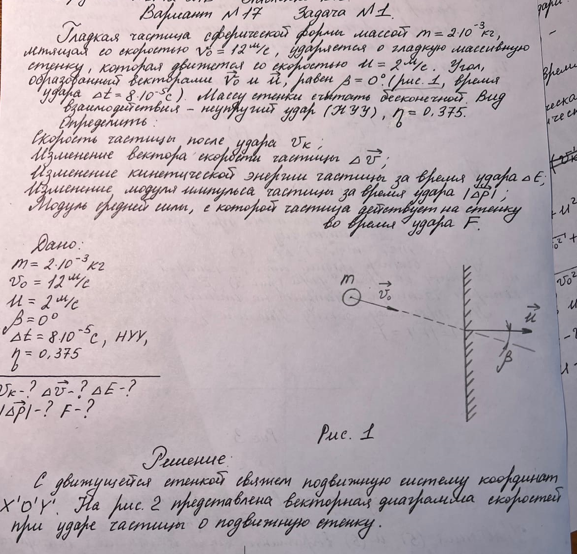 Вариант №17 Задача №1.
Гладкая частица сферической формы массой m = 2·10⁻³ кг,
мтящаяся со скоростью v₀ = 12 м/с, ударяется о гладкую массивную
стенку, которая движется со скоростью U = 2 м/с. Угол,
образованный векторами v⃗₀ и u⃗, равен β = 0° (рис. 1, время
удара Δt = 8·10⁻⁵ с). Массу стенки считать бесконечной. Вид
взаимодействия – неупругий удар (НУУ), η = 0,375.
Определить:
Скорость частицы после удара v_к;
Изменение вектора скорости частицы Δv⃗;
Изменение кинетической энергии частицы за время удара ΔE;
Изменение модуля импульса частицы за время удара |Δp⃗|;
Модуль средней силы, с которой частица действует на стенку
во время удара F.
Дано:
m = 2·10⁻³ кг
v₀ = 12 м/с
U = 2 м/с
β = 0°
Δt = 8·10⁻⁵ с, НУУ,
η = 0,375
v_к-? Δv⃗-? ΔE-?
|Δp⃗|-? F-?
m
v⃗₀
u⃗
β
Рис. 1
Решение:
С движущейся стенкой свяжем подвижную систему координат
X'O'Y'. На рис. 2 представлена векторная диаграмма скоростей
при ударе частицы о подвижную стенку.